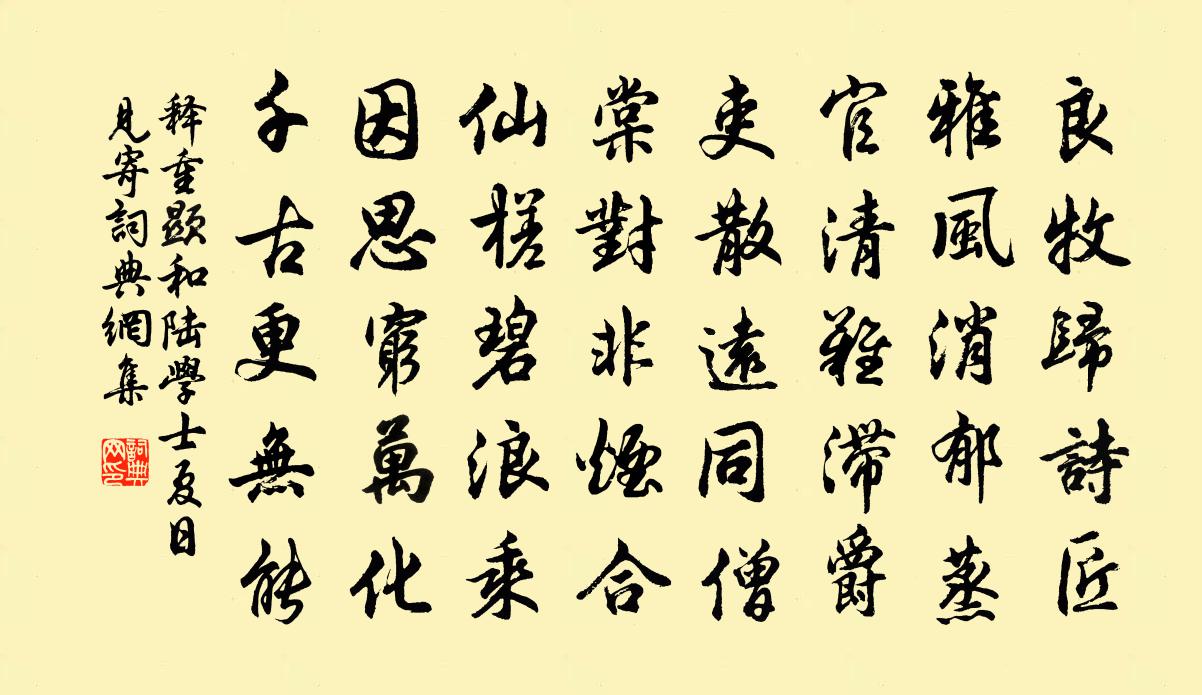 良牧歸詩匠
雅風消郁蒸
官清難滯爵
吏散遠同僧
棠對非煙合
仙槎碧浪乘
因思窮萬化
千古更無能
释重顯和陆學士夏日
見寄詞典網集
詞典
网印